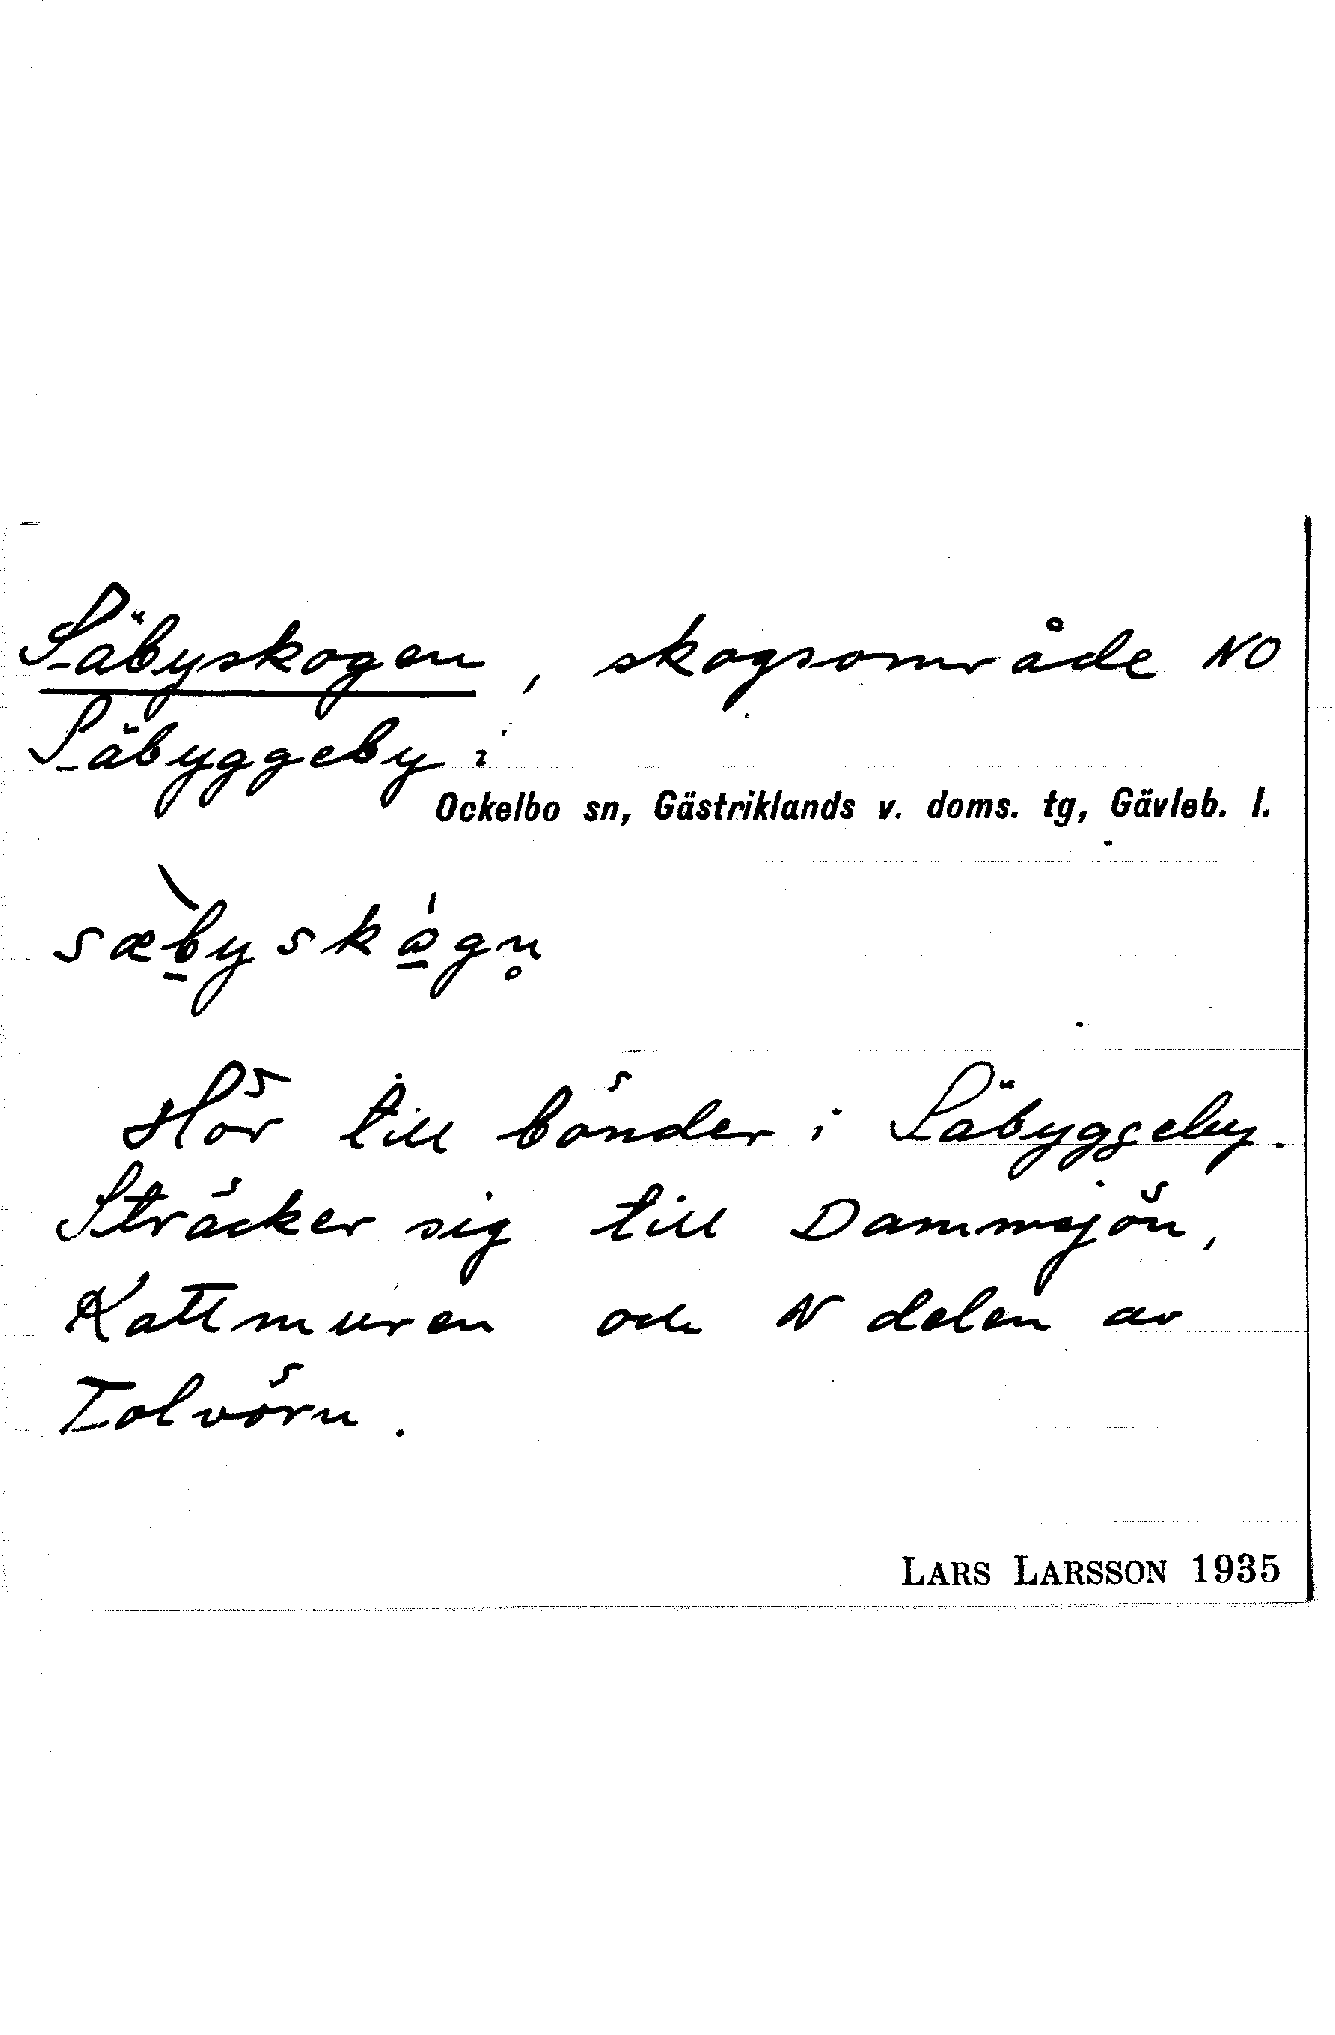 Säbyskogen, skogsområde NO
Säbyggeby i
Ockelbo sn, Gästriklands v. doms. tg, Gävleb. l.
sæ̀byskágn̥
Hör till bönder i Säbyggeby.
Sträcker sig till Dammsjön,
Kattmuren och N delen av
Tolvörn.
LARS LARSSON 1935